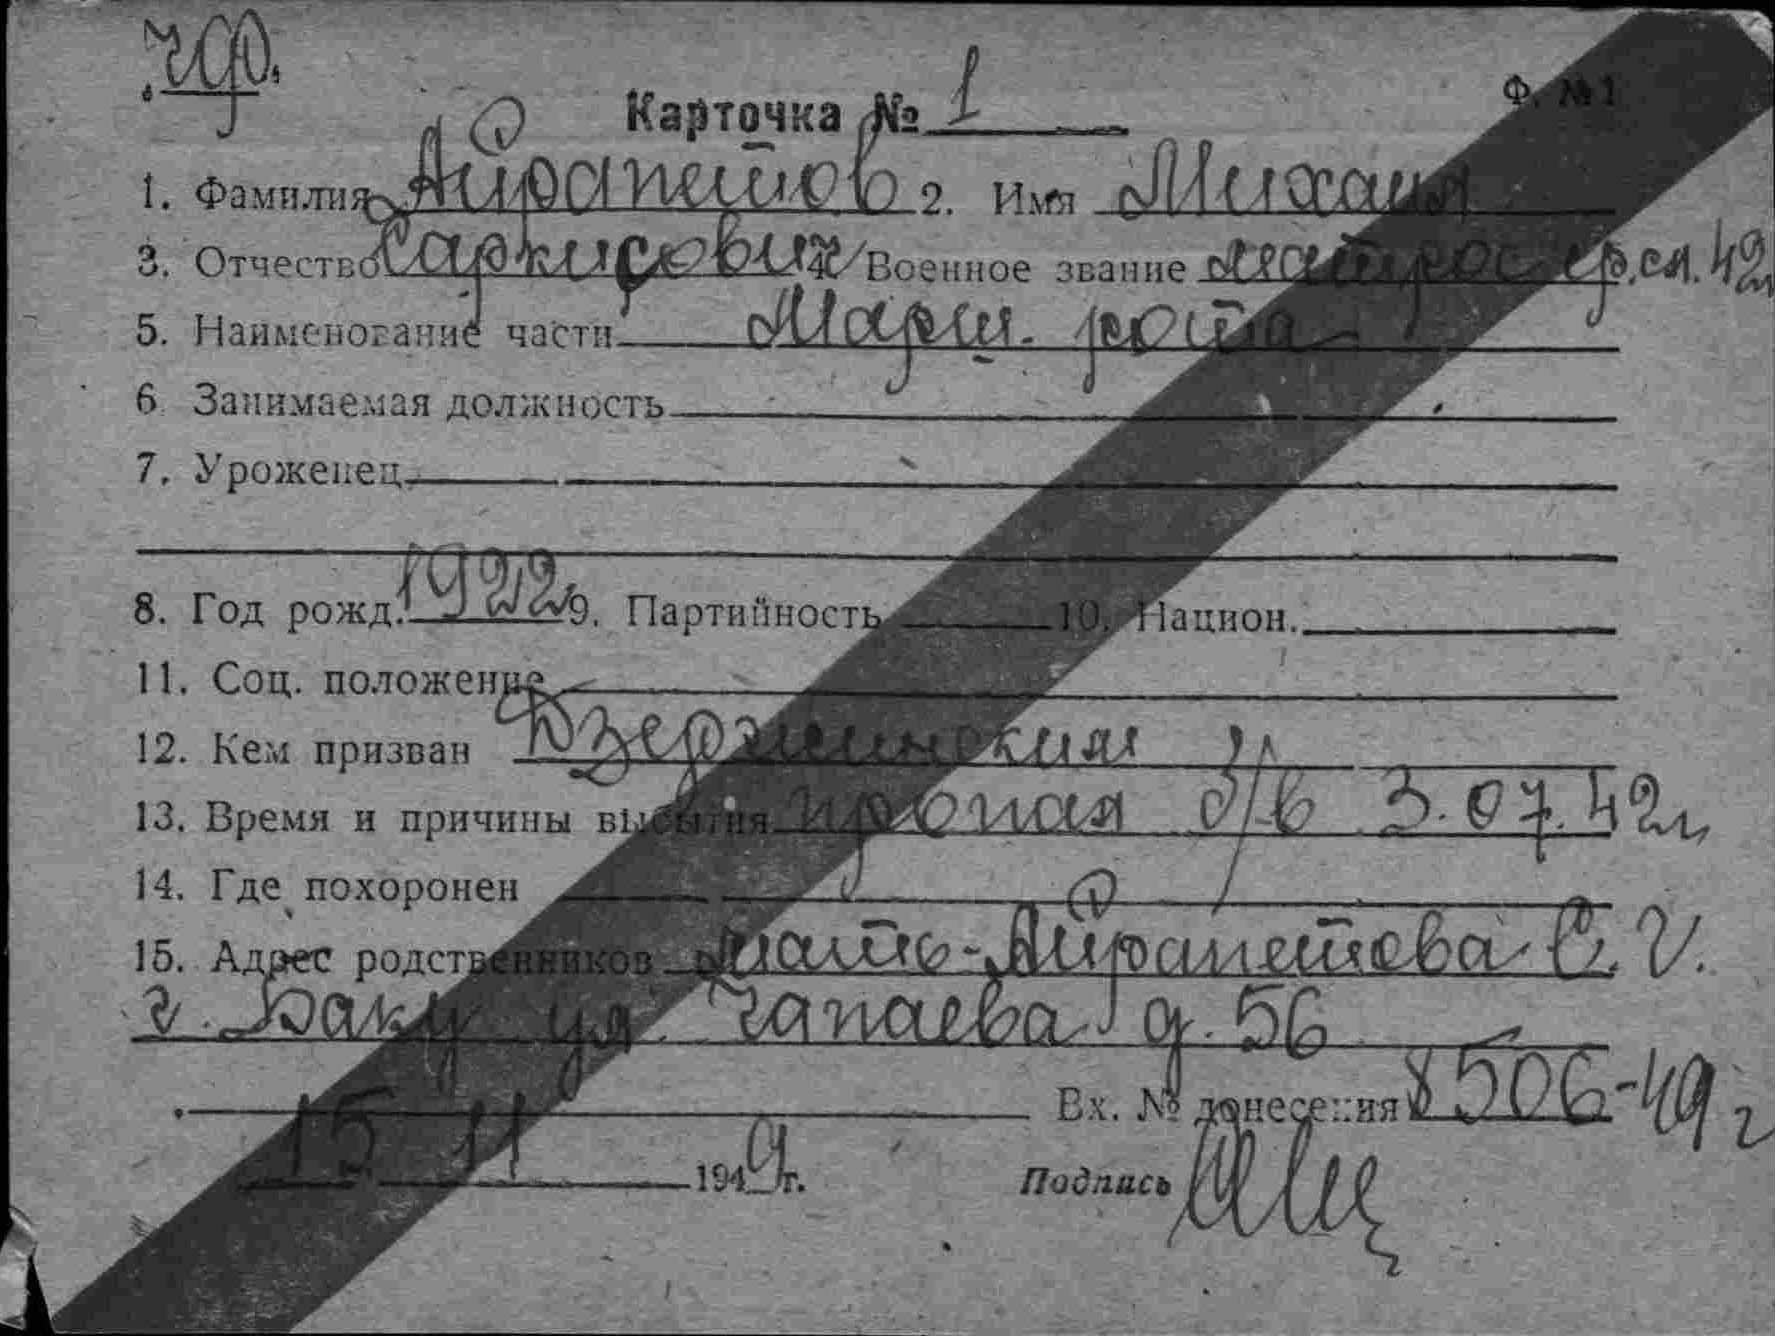 чф.
Карточка № 1 Ф. №1
1. Фамилия Айрапетов 2. Имя Михаил
3. Отчество Саркисович 4. Военное звание матрос ср.сл. 42
5. Наименование части Марш. рота
6. Занимаемая должность
7. Уроженец
8. Год рожд. 1922 9. Партийность 10. Национ.
11. Соц. положение
12. Кем призван Дзержинским
13. Время и причины выбытия пропал б/в 3.07.42г.
14. Где похоронен
15. Адрес родственников мать-Айрапетова С. Г.
г. Баку ул. Чапаева д. 56
Вх. № донесения 8506-49г
15 11 1949 г. Подпись